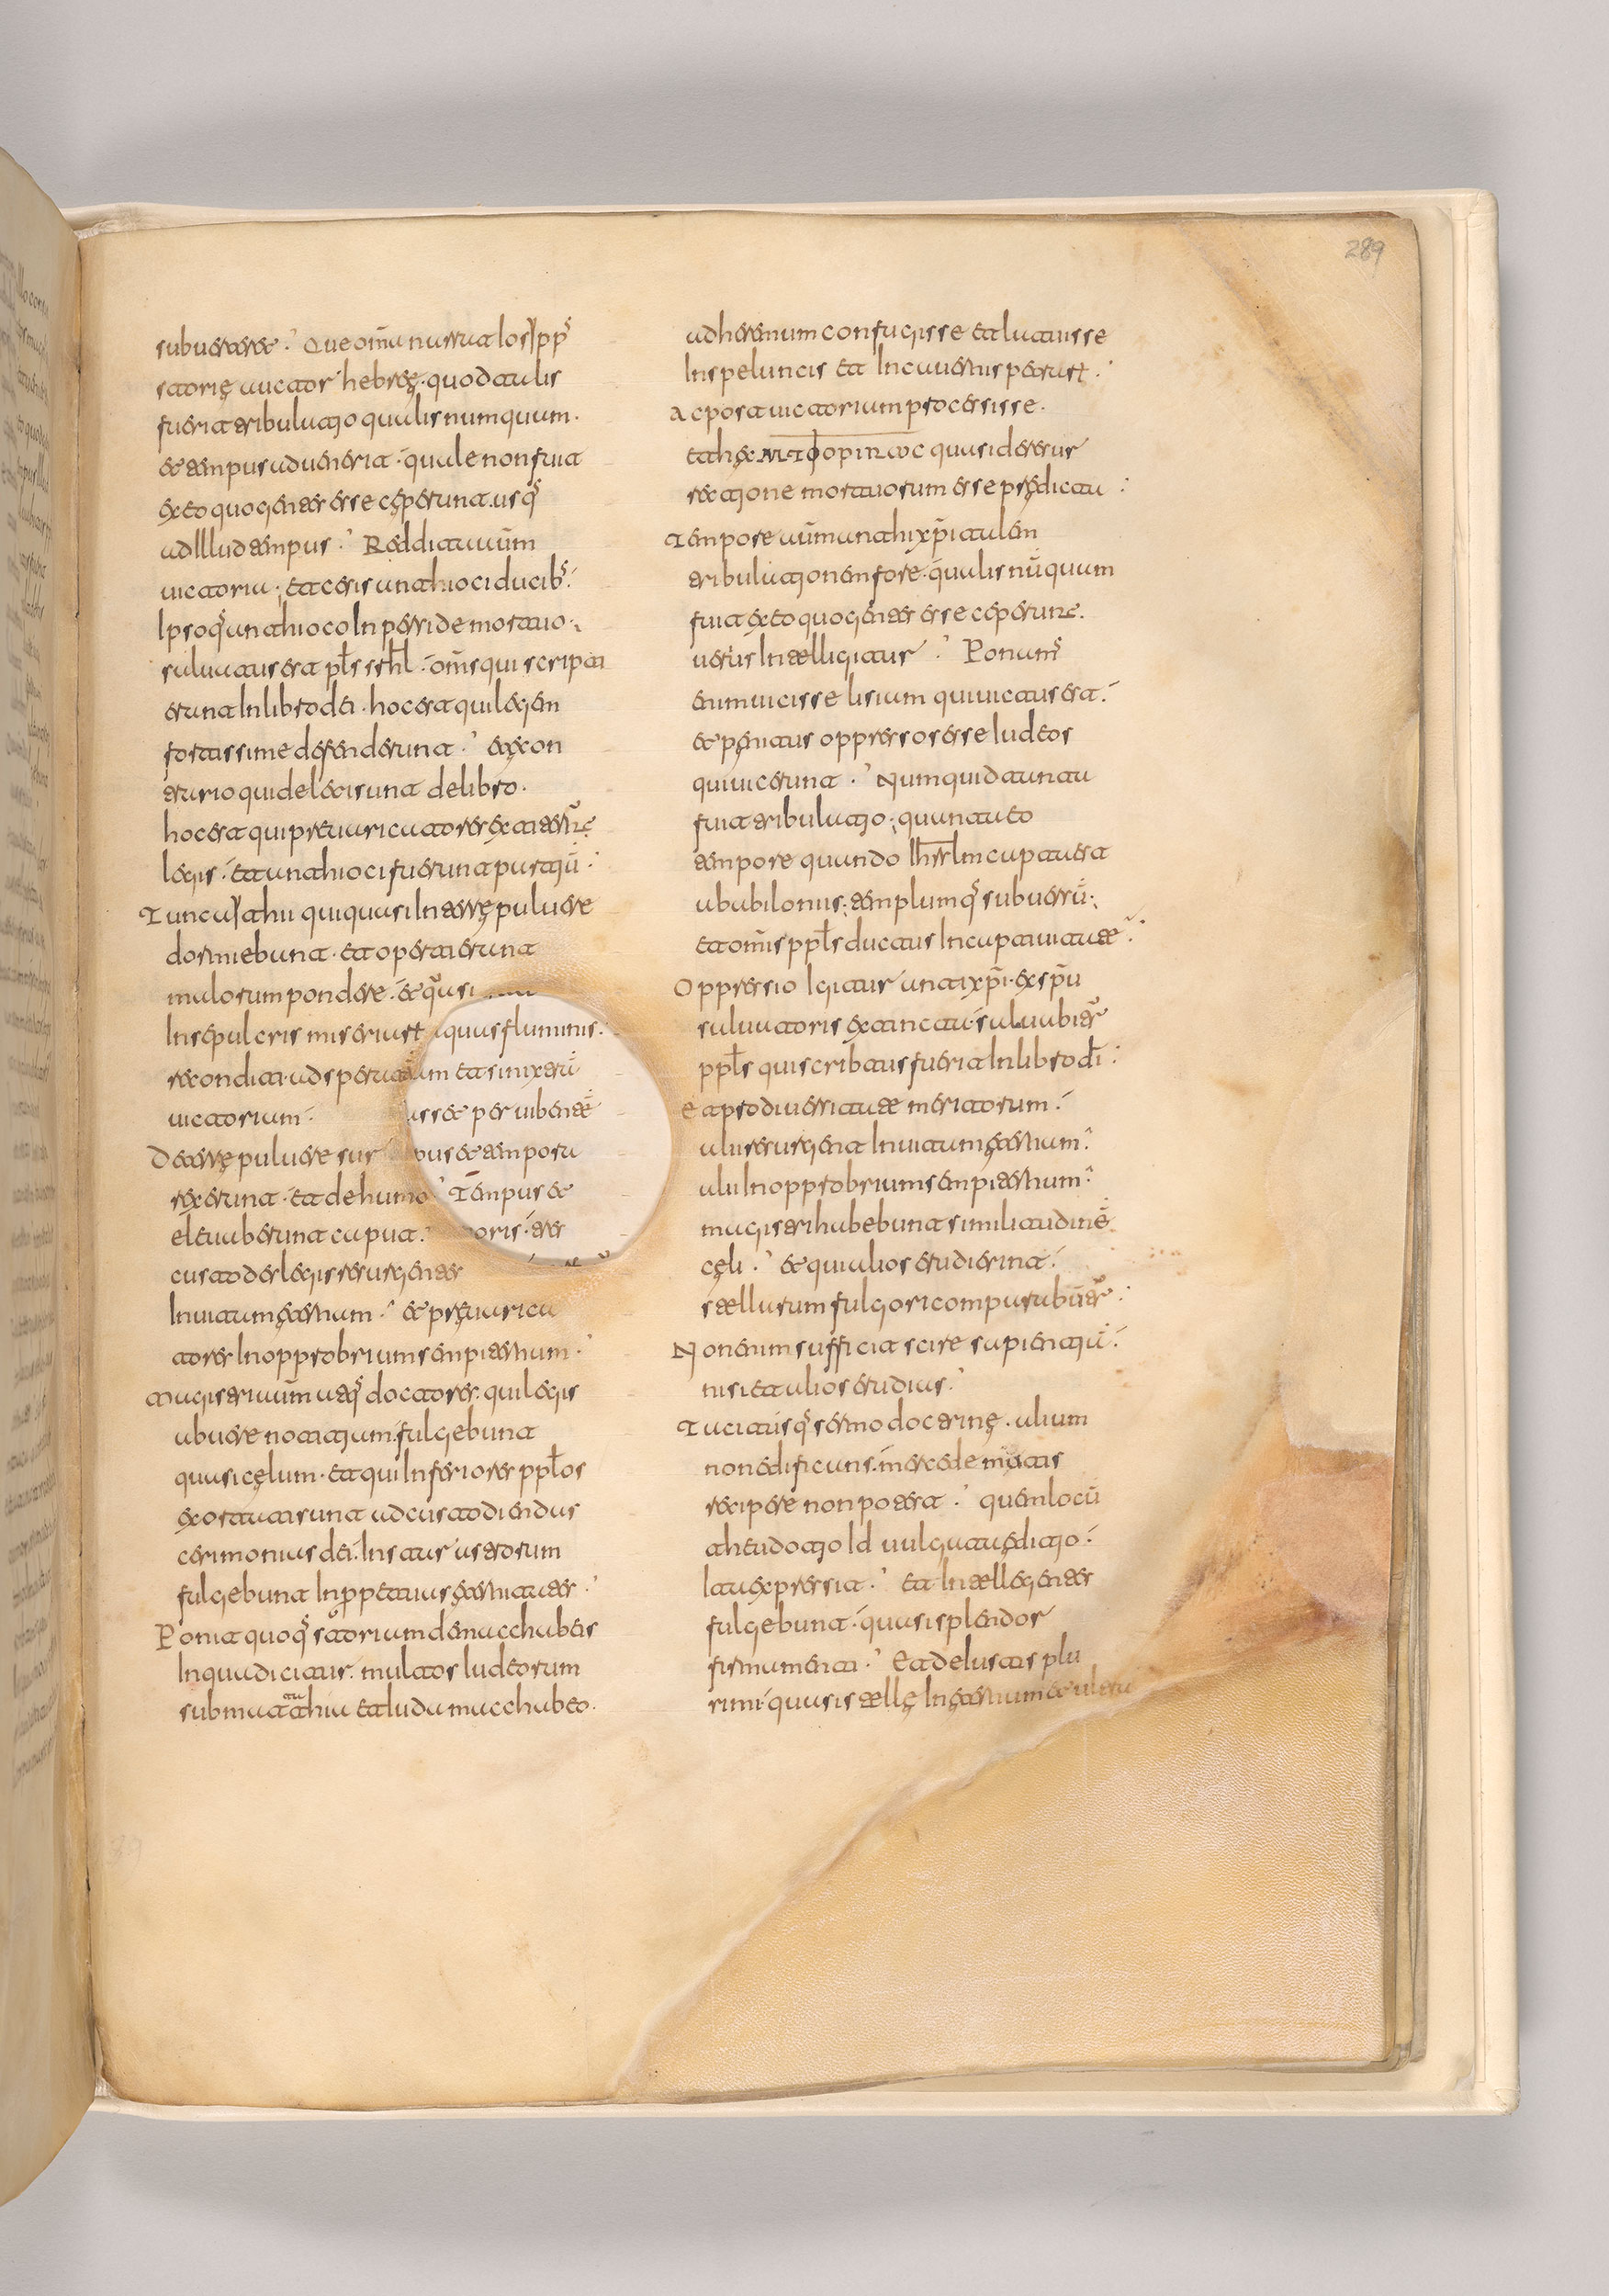 289
subverteret. Que omnia narrat ioseppus
storię victor hebreę. quod talis
fuerit tribulatio qualis numquam.
et tempus advenerit. quale non fuit
ex eo quo gentes esse cęperunt usq;
ad Illud tempus. Reddita uūm
victoria. et cesis antiochi ducib;
Ipsoq; antiocho In perside mortuo.
salvatus est pl̄s isrhl. om̄s qui scripti
erant In libro dei. hoc est qui legem
fortissime defenderunt. et e contrario
qui deleti sunt de libro.
hoc est qui prevaricatores extiterunt
legis. et antiochi fuerunt partiū.
Tunc ait hii qui quasi In terrę pulvere
dormiebant. et operti erant
malorum pondere. et quasi
In sepulcris miseriarum aquas fluminis.
recondita. ad speratam um et
victoriam. et per viben
De terrę pulvere sur pus et tempora
rexerunt. et de humo Tempus et
elevaberunt capita. oris.
custodes legis resurgentes
In vitam ęternam. et pręvarica
tores In opprobrium sempiternum.
Magistri aūm atq; doctores. qui legis
abuere notitiam. fulgebunt
quasi cęlum. et qui Inferiores pplos
exortati sunt ad custodiendas
cerimonias dei. Instar astrorum
fulgebunt In ppetuas ęternitates.
Ponit quoq; storiam de macchabeis
In qua dicitur. multos Iudeorum
sub mattathia et Iuda maccabeo.
ad heremum confugisse et latuisse
In speluncis et In cavernis petrarum.
Ac post victoriam processisse.
et hęc ΜΕΤΑΦΟΡΙΚΩC quasi de resur
rectione mortuorum esse prędicata.
Tempore aūm antixp̄i talem
tribulationem fore. qualis nūquam
fuit ex eo quo gentes esse ceperunt.
verius Intellegitur. Ponam;
enim vicisse lisiam qui victus est.
et penitus oppressos esse Iudeos
qui vicerunt. Numquid tanta
fuit tribulatio. quanta eo
tempore quando Ihrslm capta est
a babilonis. templumq; subversū.
et omnis ppl̄s ductus In captivitate.
Oppressio Igitur antixp̄i. ex spū
salvatoris extincta. salvabitur
ppl̄s qui scribtus fuerit In libro dī.
Et pro diversitate meritorum.
alii resurgent In vitam ęternam.
alii In opprobrium sempiternum.
magistri habebunt similitudinē
cęli. et qui alios erudierint.
stellarum fulgori comparabuntur.
Non enim sufficit scire sapientiā.
nisi et alios erudias.
Tacitusq; sermo doctrinę. alium
non edificans. mercedem operis
recipere non potest. quem locū
theudotio Id vulgata ędictio.
Ita expressit. Et Intellegentes
fulgebunt. quasi splendor
firmamenti. Et de Iustis plu
rimi. quasi stellę In ęternum et ultra